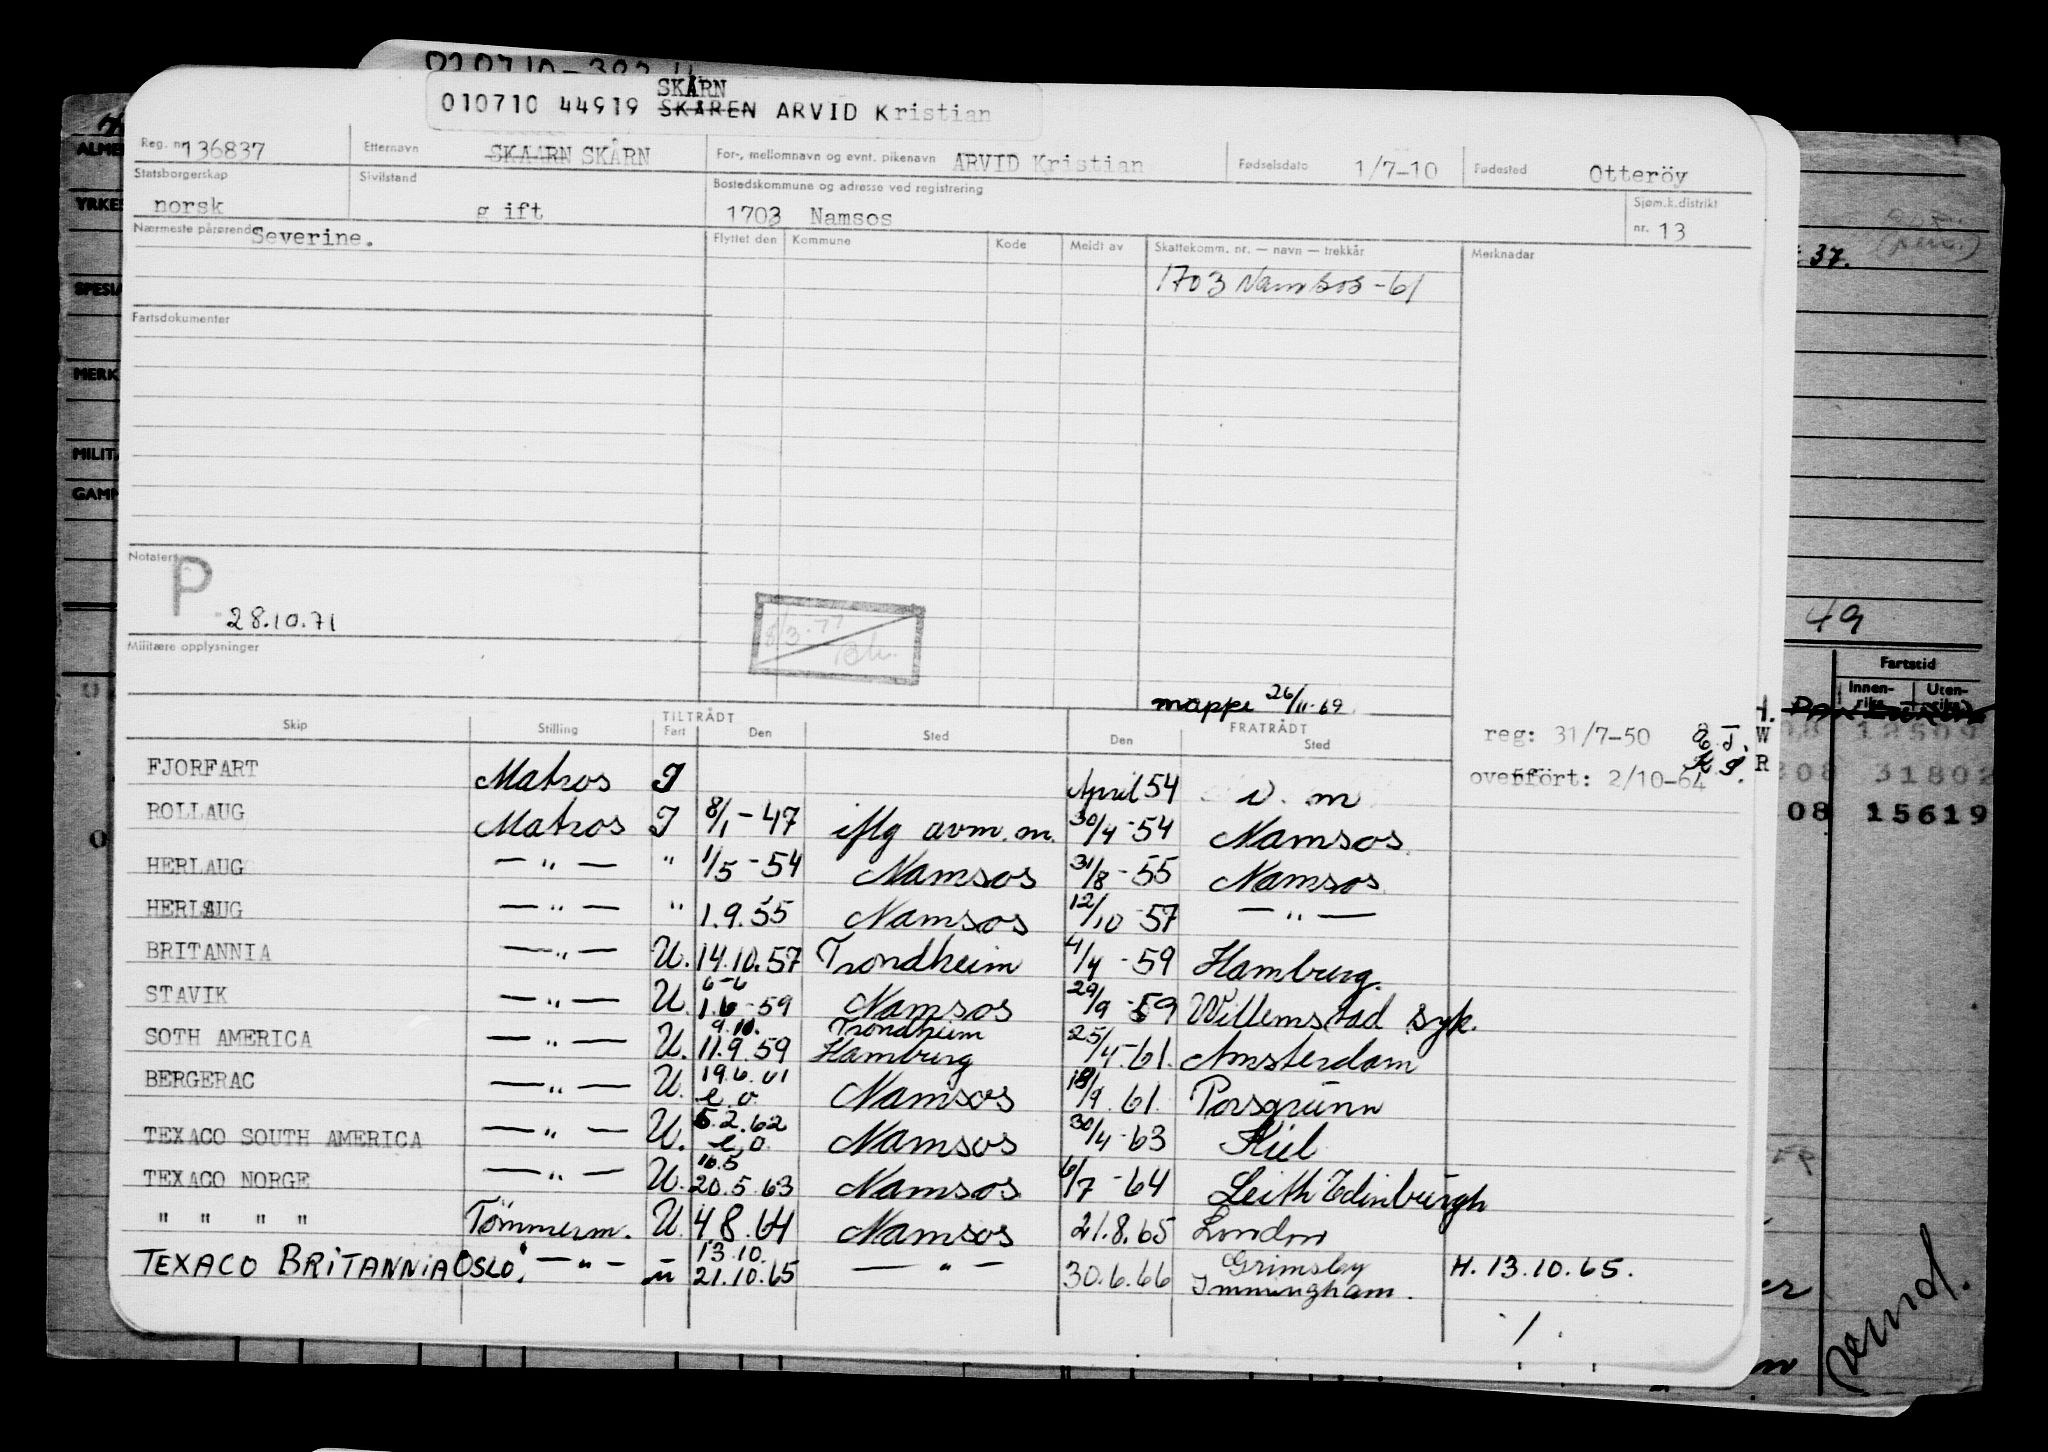 SKÅRN
010710 44919 SKAREN ARVID Kristian
Reg. nr. 136837 Etternavn SKAARN SKÅRN For-, mellomnavn og evnt. pikenavn ARVID Kristian Fødselsdato 1/7-10 Fødested Otteröy
Statsborgerskap Sivilstand Bostedskommune og adresse ved registrering Sjøm.k.distrikt
norsk gift 1703 Namsos nr. 13
Nærmeste pårørende Severine. Flyttet den Kommune Kode Meldt av Skattekomm. nr. — navn — trekkår Merknader
1703 Namsos -61
37.
Fartsdokumenter
ALME
YRKES
SPESIA
MERK
MILITÆ
GAMM
Notater
P 28.10.71
8/3-77
Militære opplysninger
49
Fartstid
Innen-riks Uten-riks
mappe 26/11-69
Skip Stilling TILTRÅDT Fart Den Sted FRATRÅDT Den Sted
reg: 31/7-50
overfört: 2/10-64
31802
08 15619
FJORFART Matros I April 54 v. m
ROLLAUG Matros I 8/1-47 iflg avm. m. 30/4-54 Namsos
HERLAUG — " — " 1/5-54 Namsos 31/8-55 Namsos
HERLAUG — " — " 1.9.55 Namsos 12/10 57 — " —
BRITANNIA — " — U. 14.10.57 Trondheim 4/4-59 Hamburg.
STAVIK — " — U. 6-6 1.6-59 Namsos 29/9-59 Willemstad syk.
SOTH AMERICA — " — U. 9.10. 11.9.59 Trondheim Hamburg 25/4-61. Amsterdam
BERGERAC — " — U. 19.6.61 e.o. Namsos 18/9.61. Porsgrunn
TEXACO SOUTH AMERICA — " — U. 5.2.62 e.o. Namsos 30/4-63 Kiel
TEXACO NORGE — " — U. 16.5 20.5.63 Namsos 6/7-64 Leith Edinburgh
" " " " Tömmerm. U. 4.8.64 Namsos 21.8.65 London
TEXACO BRITANNIA OSLO. — " — u 13.10. 21.10.65 — " — 30.6.66 Grimsby Immingham. H. 13.10.65.